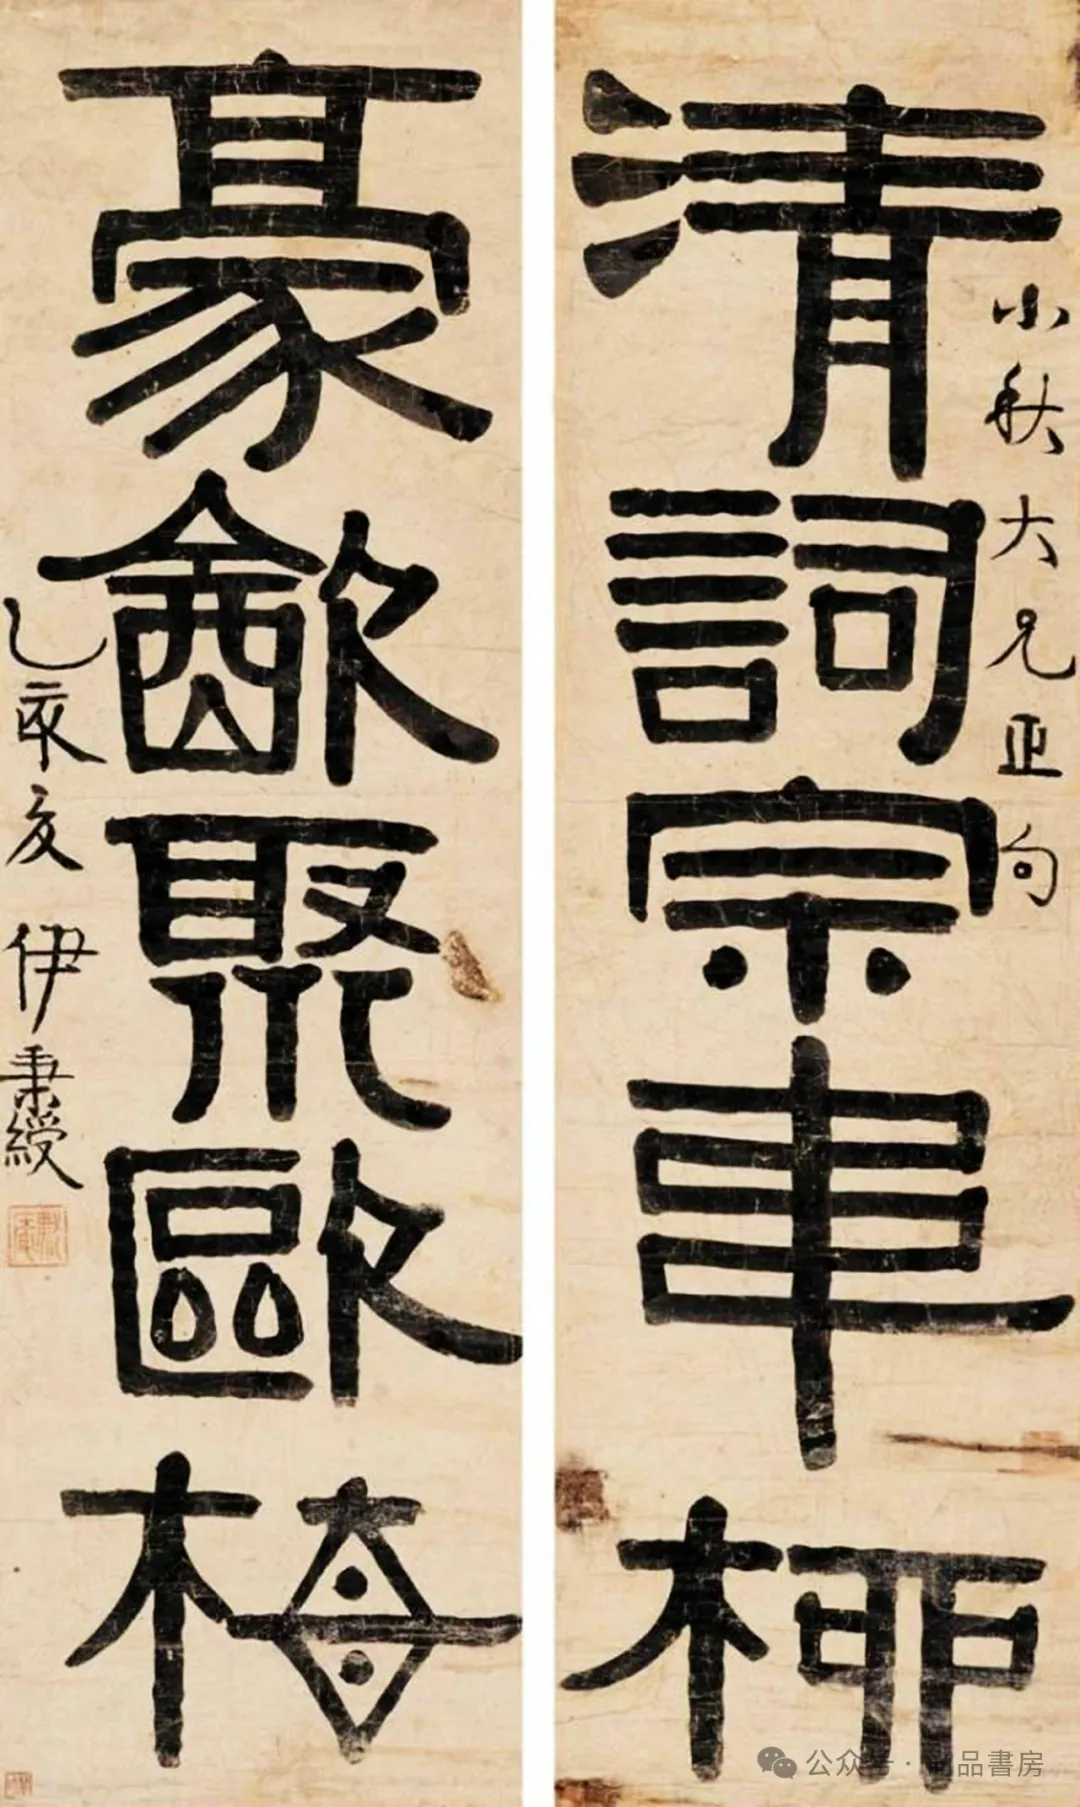 小秋大兄正句
清詞宗韋柳
豪㱃聚歐梅
乙亥夏 伊秉綬
公众号 · 品書房